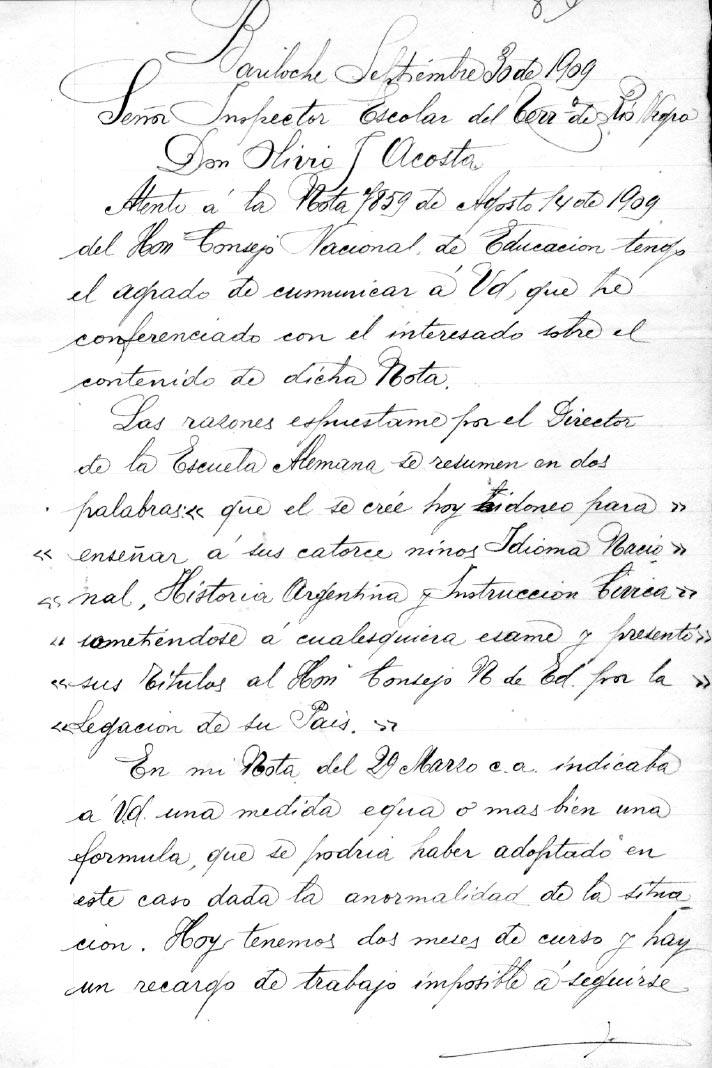 Bariloche Septiembre 30 de 1909
Señor Inspector Escolar del Terr.º de Río Negro
Don Olivio J Acosta
Atento á la Nota 4859 de Agosto 14 de 1909
del Hon Consejo Nacional de Educacion tengo
el agrado de cumunicar á Vd, que he
conferenciado con el interesado sobre el
contenido de dicha Nota.
Las razones espuestame por el Director
de la Escuela Alemana se resumen en dos
palabras: « que el se créé hoy idoneo para »
« enseñar á sus catorce niños Idioma Nacio »
« nal, Historia Argentina y Instruccion Civica »
« sometiéndose á cualesquiera esame y presentó »
« sus Titulos al Hon Consejo N de Ed. por la »
« Legacion de su Pais. »
En mi Nota del 29 Marzo c.a. indicaba
á Vd. una medida equa o mas bien una
formula, que se podria haber adoptado en
este caso dada la anormalidad de la situa
cion. Hoy tenemos dos meses de curso y hay
un recargo de trabajo imposible á seguirse